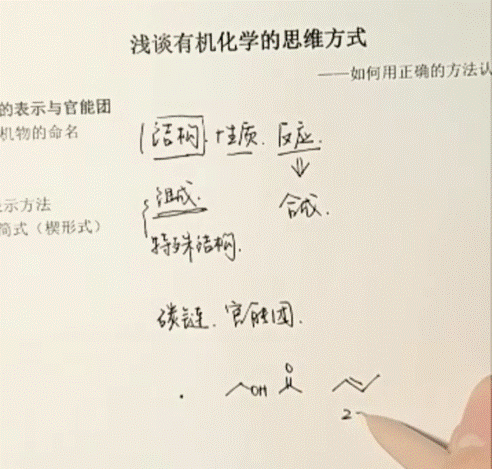 浅谈有机化学的思维方式
——如何用正确的方法认
的表示与官能团
机物的命名
结构. 性质. 反应
示方法
简式（楔形式）
组成.
合成.
特殊结构.
碳链. 官能团.
OH
O
2-